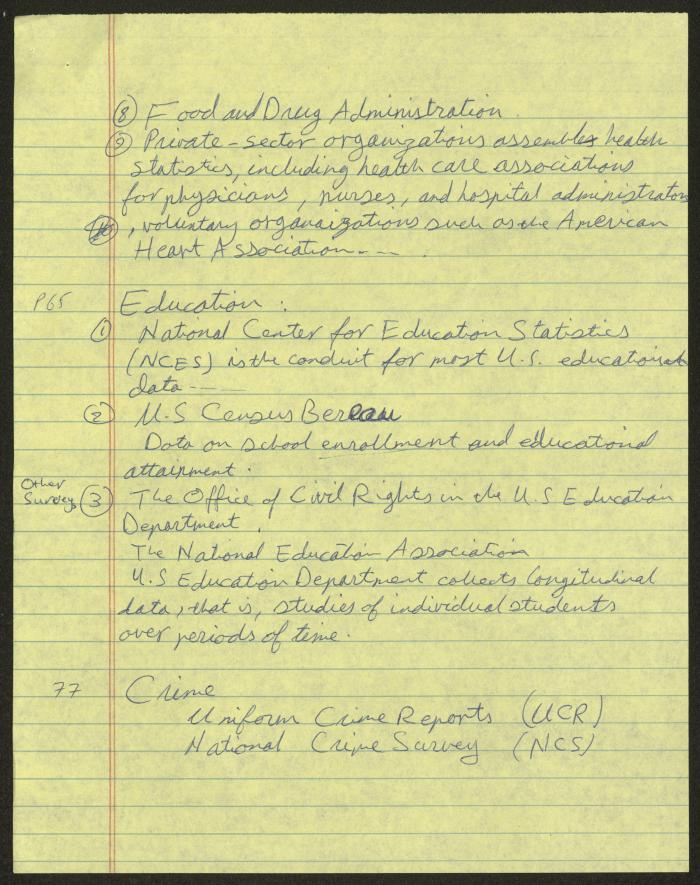 ⑧ Food and Drug Administration.
⑨ Private-sector organizations assembles health
statistics, including health care associations
for physicians, nurses, and hospital administrators
, voluntary organaizations such as the American
Heart Association---- .
P65 Education :
① National Center for Education Statistics
(NCES) is the conduit for most U.S. educational
data -----
② U.S Census Bereau
Data on school enrollment and educational
attainment.
Other
Surveys ③ The Office of Civil Rights in the U.S Education
Department.
The National Education Association
U.S Education Department collects longitudinal
data, that is, studies of individual students
over periods of time.
77 Crime
Uniform Crime Reports (UCR)
National Crime Survey (NCS)